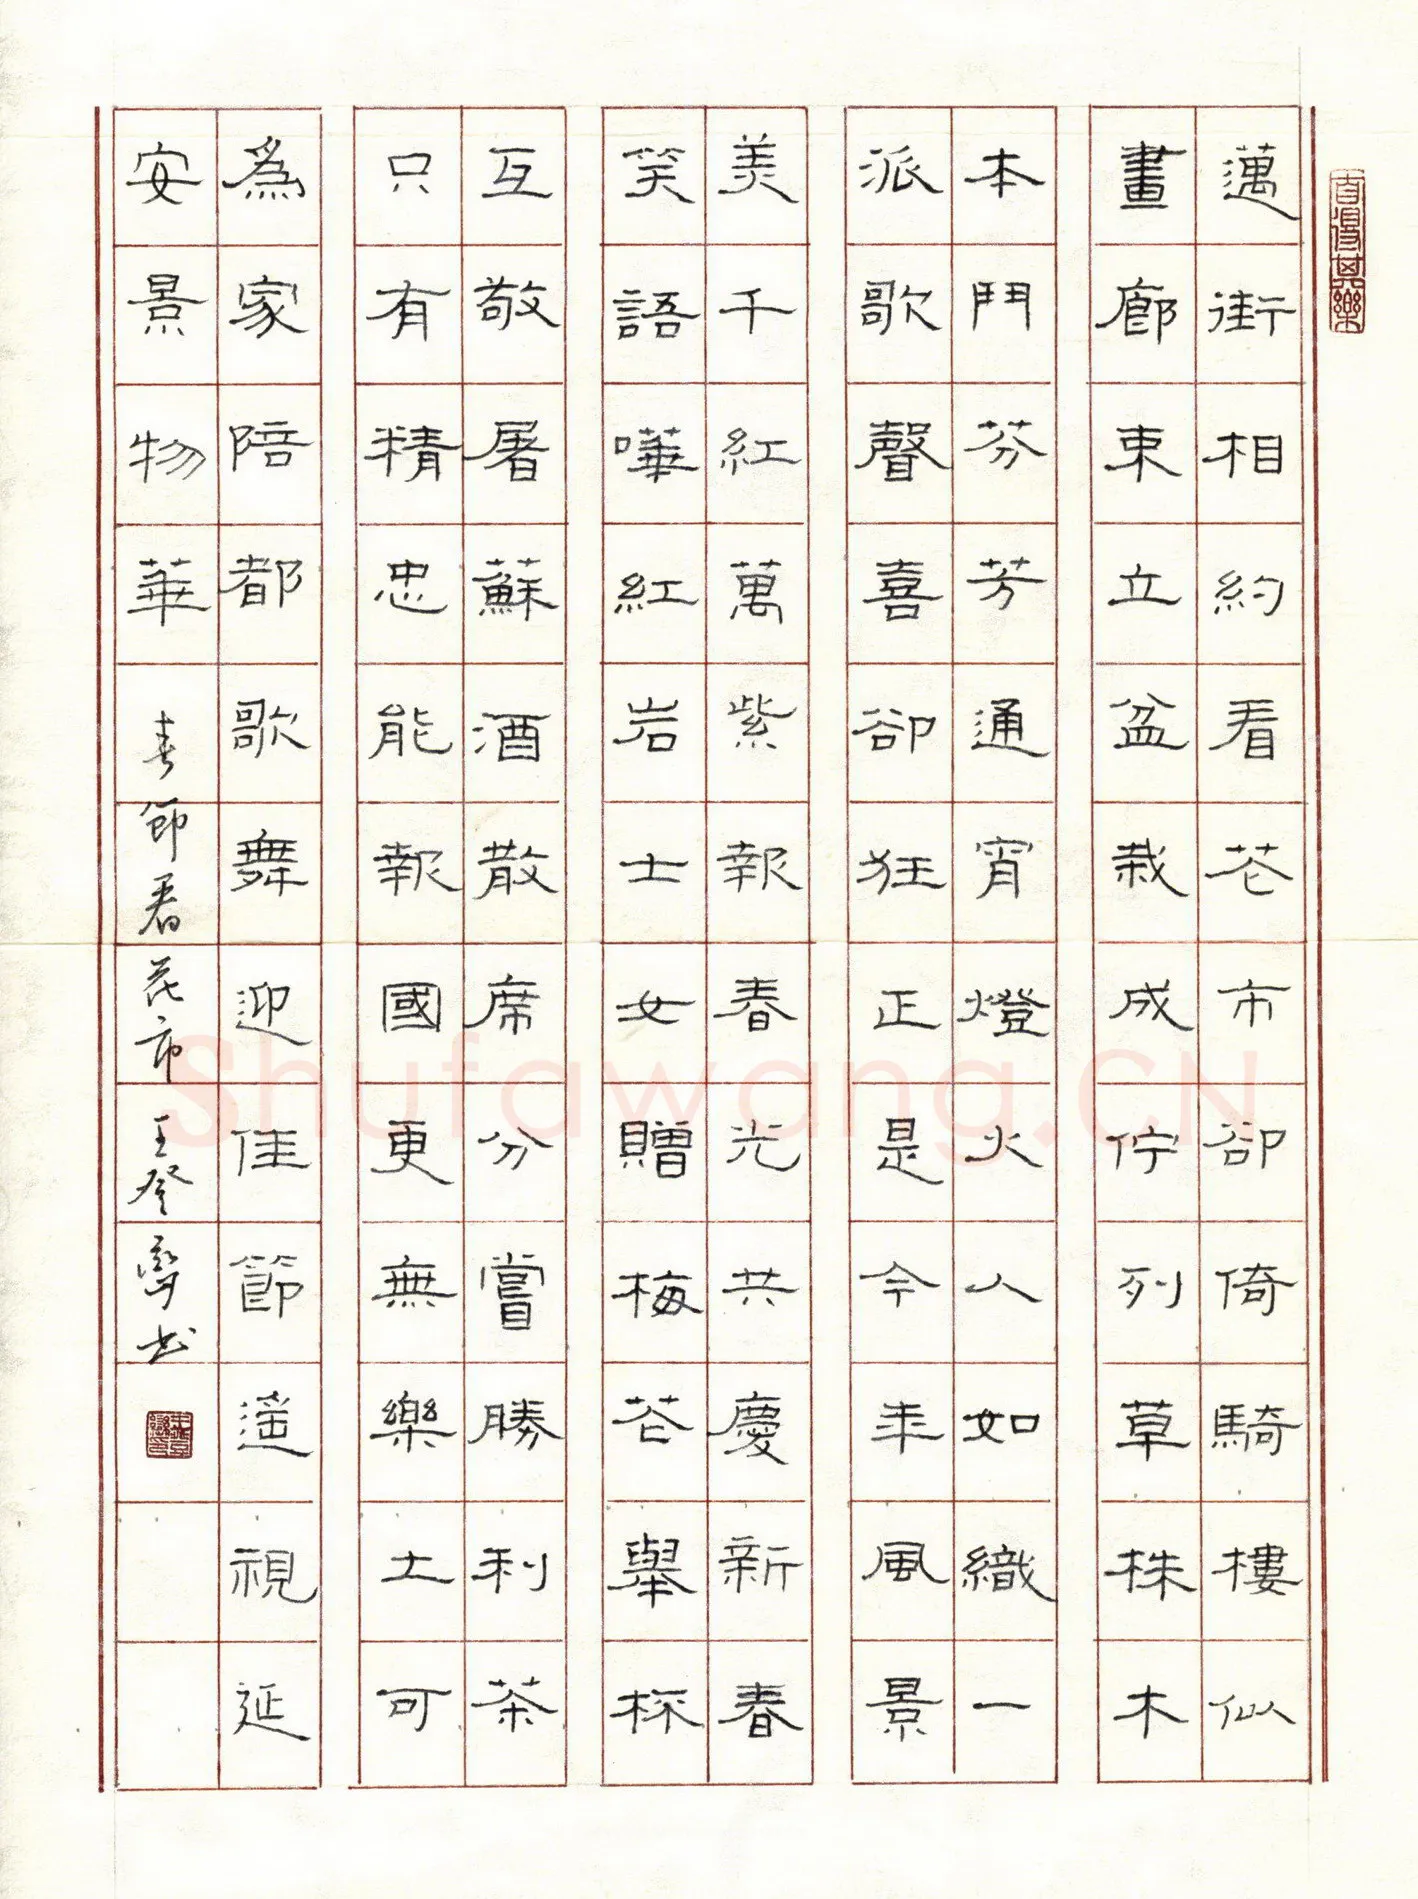 自得其樂
邁街相約看花市卻倚騎樓似
畫廊束立盆栽成佇列草株木
本鬥芬芳通宵燈火人如織一
派歌聲喜卻狂正是今年風景
美千紅萬紫報春光共慶新春
笑語嘩紅岩士女贈梅花舉杯
互敬屠蘇酒散席分嘗勝利茶
只有精忠能報國更無樂土可
為家陪都歌舞迎佳節遥視延
安景物華 春節看花市 王登齊书
Shufawang.CN